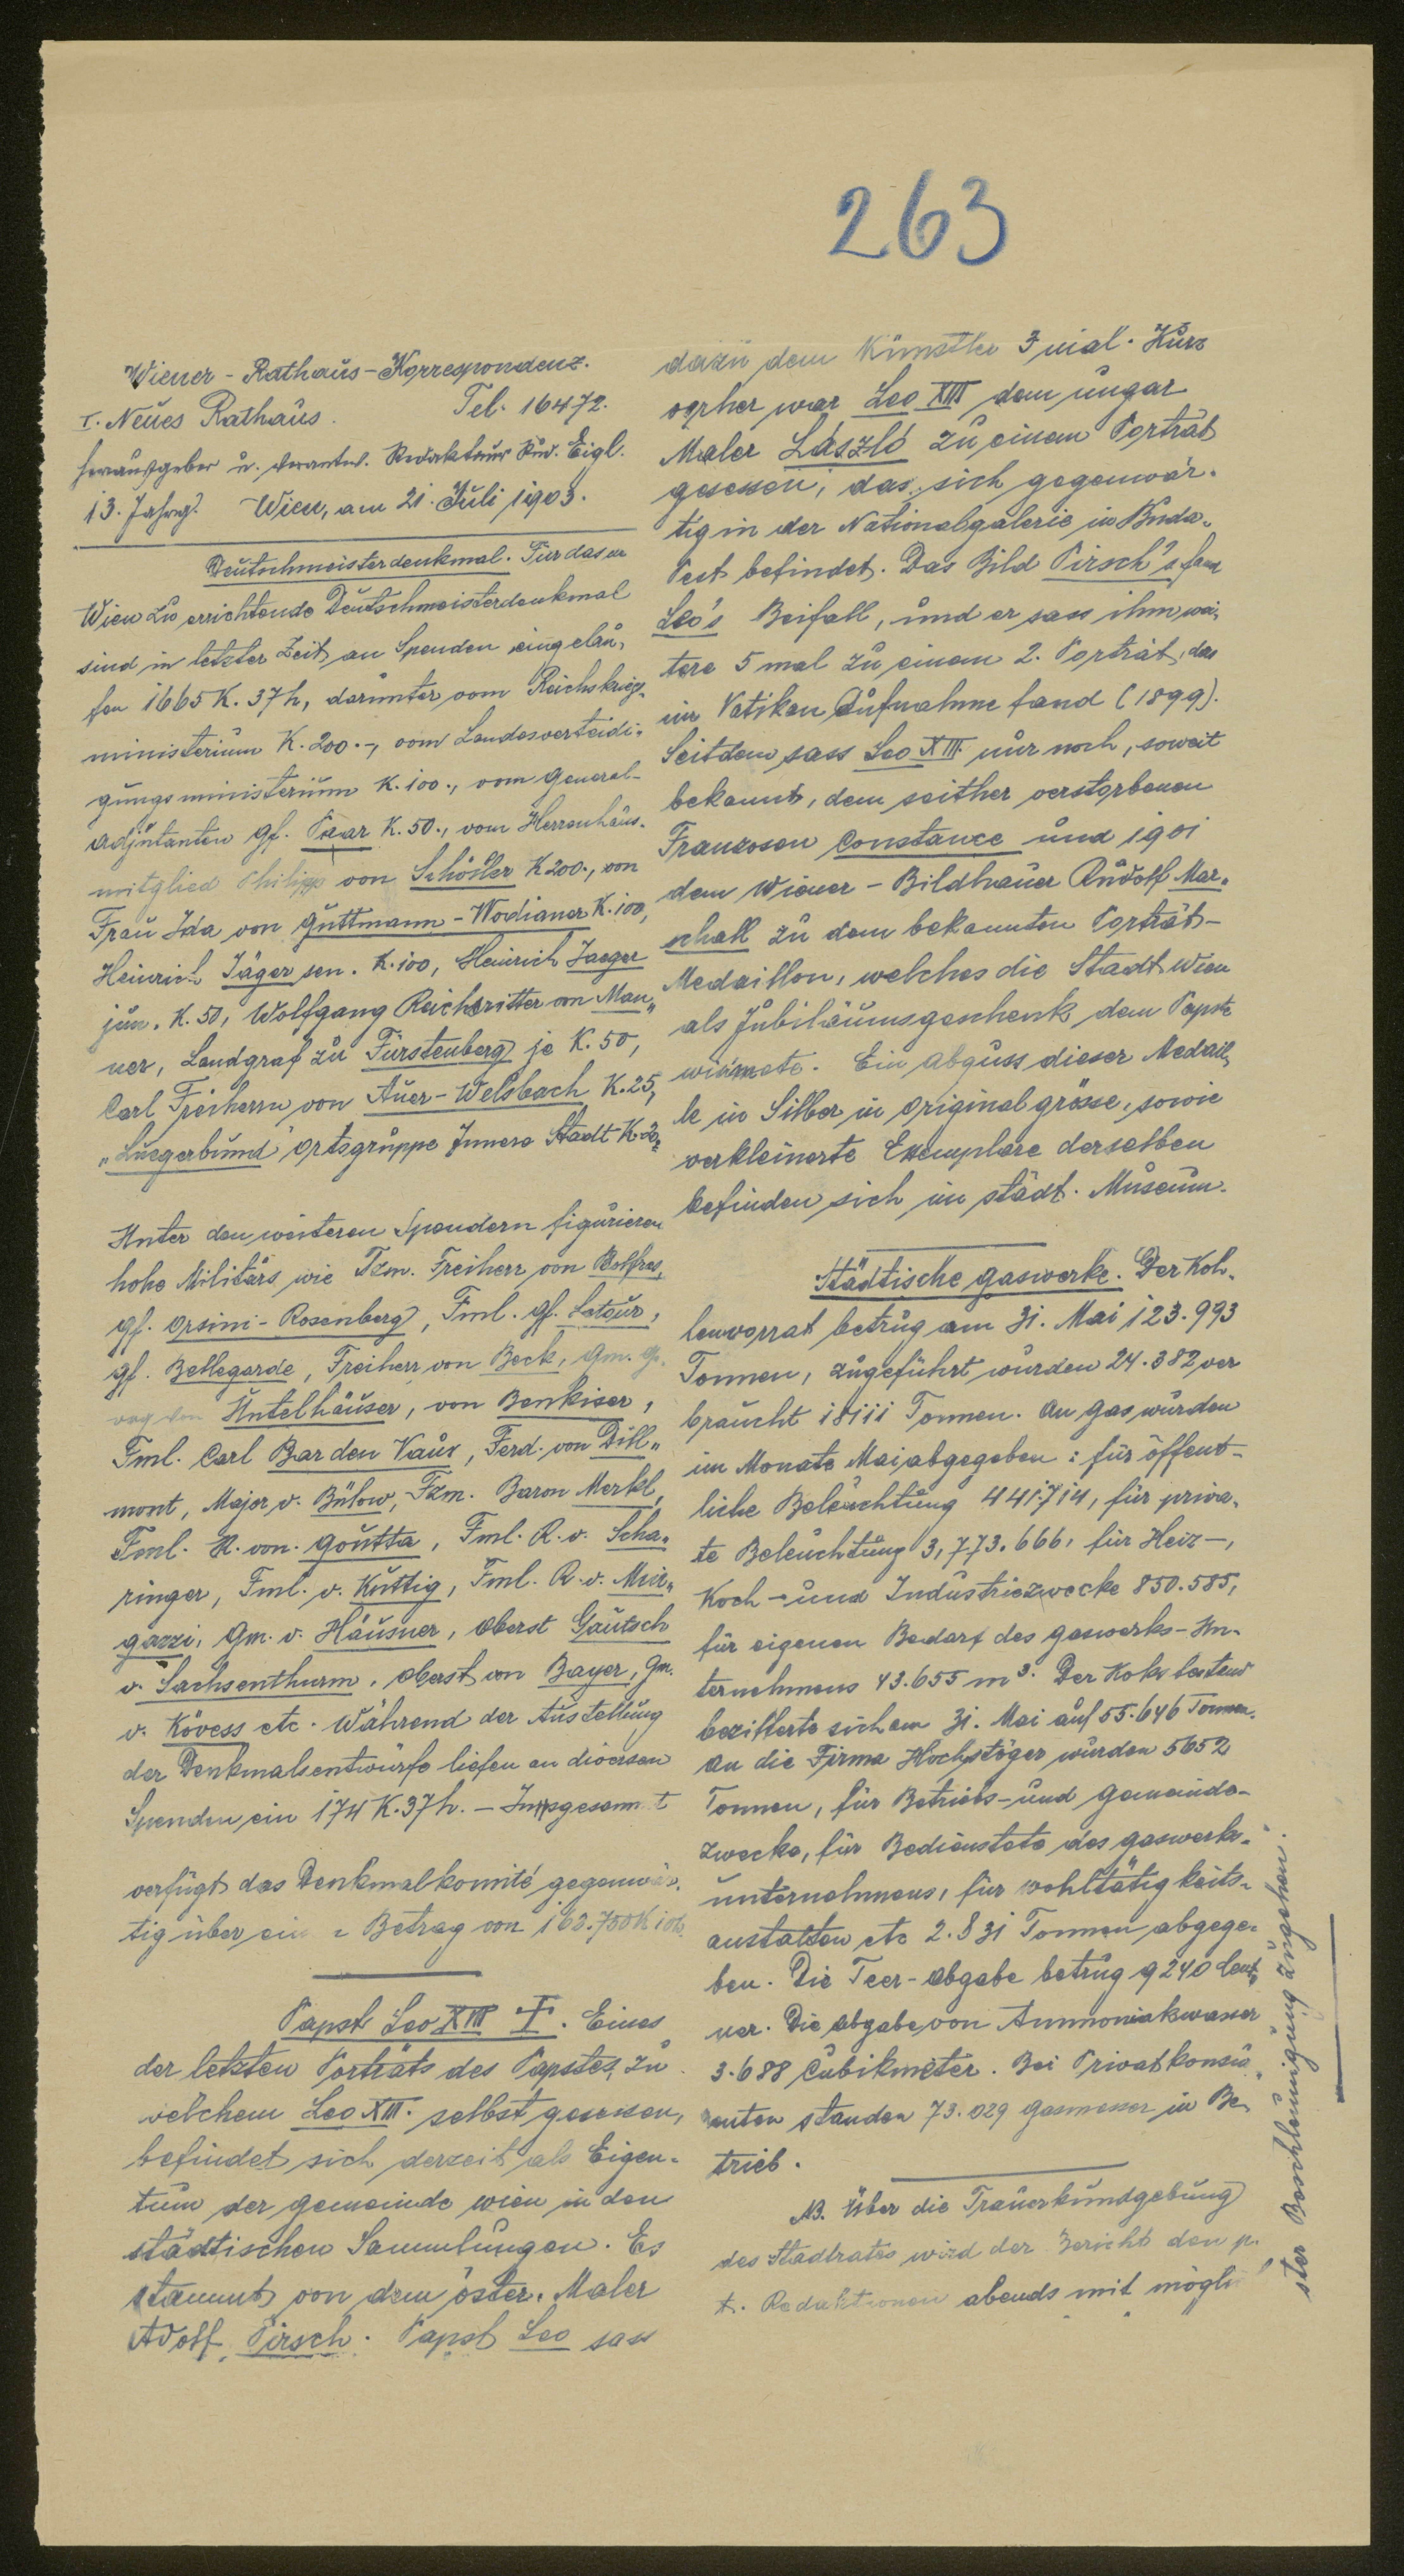 263
Wiener-Rathaus-Korrespondenz.
I. Neues Rathaus. Tel. 16472.
Herausgeber u. verantw. Redakteur Rud. Eigl.
13. Jahrg. Wien, am 21. Juli 1903.
Deutschmeisterdenkmal. Für das in
Wien zu errichtende Deutschmeisterdenkmal
sind in letzter Zeit an Spenden eingelau-
fen 1665 K. 37 h, darunter vom Reichskriegs-
ministerium K. 200.-, vom Landesverteidi-
gungsministerium K. 100., vom General-
adjutanten Gf. Paar K. 50., vom Herrenhaus-
mitglied Philipp von Schöller K 200., von
Frau Ida von Guttmann-Wodianer K. 100,
Heinrich Jäger sen. K. 100, Heinrich Jaeger
jun. K. 50, Wolfgang Reichsritter von Man-
ner, Landgraf zu Fürstenberg je K. 50,
Carl Freiherrn von Auer-Welsbach K. 25,
„Luegerbund" Ortsgruppe Innere Stadt K.
Unter den weiteren Spendern figurieren
hohe Militärs, wie Fzm. Freiherr von Bolfras,
Gf. Orsini-Rosenberg, Fml. Gf. Latour,
Gf. Bellegarde, Freiherr von Beck, Gm.
von Hutelhäuser, von Benkiser,
Fml. Carl Bar den Vaux, Ferd. von Dill-
mont, Major v. Bülow, Fzm. Baron Merkl,
Fml. R. von. Goutta, Fml. R. v. Scha-
ringer, Fml. v. Kuttig, Fml. R. v.
gazzi, Gm. v. Häusner, Oberst Gautsch
v. Sachsenthurm, Oberst von Bayer, Gm.
v. Kövess etc. Während der Austellung
der Denkmalsentwürfe liefen an diversen
Spenden ein 174 K. 37 h. - Insgesammt
verfügt das Denkmalkomité gegenwär-
tig über ein Betrag von 162.750 K
Papst Leo XIII †. Eines
der letzten Porträts des Papstes, zu
welchem Leo XIII. selbst gesessen,
befindet sich derzeit als Eigen-
tum der Gemeinde Wien in den
städtischen Sammlungen. Es
stammt von dem öster. Maler
Adolf Pirsch. Papst Leo sass
dazu dem Künstler 3 mal. Kurz
vorher war Leo XIII dem ungar
Maler László zu einem Porträt
gesessen, das sich gegenwär-
tig in der Nationalgalerie in Buda-
Pest befindet. Das Bild Pirsch's fand
Leo's Beifall, und er sass ihm wei-
tere 5 mal zu einem 2. Porträt, das
im Vatikan Aufnahme fand (1899).
Seitdem sass Leo XIII. nur noch, soweit
bekannt, dem seither verstorbenen
Franzosen Constance und 1901
dem Wiener-Bildhauer Rudolf Mar-
schall zu dem bekannten Porträt-
Medaillon, welches die Stadt Wien
als Jubiläumsgeschenk dem Papste
widmete. Ein Abguss dieser Medail-
le in Silber in Originalgrösse, sowie
verkleinerte Exemplare derselben
befinden sich im städt. Museum.
Städtische Gaswerke. Der Koh-
lenvorrat betrug am 31. Mai 123.993
Tonnen, zugeführt wurden 24.382 ver
braucht 18111 Tonnen. An Gas wurden
im Monate Mai abgegeben: für öffent-
liche Beleuchtung 441.714, für priva-
te Beleuchtung 3,773.666, für Heiz-,
Koch- und Industriezwecke 850.585,
für eigenen Bedarf des Gaswerks-Un-
ternehmens 43.655 m³. Der Koksbestand
bezifferte sich am 31. Mai auf 55.646 Tonnen.
An die Firma Hochstöger wurden 5652
Tonnen, für Betriebs- und Gemeinde-
zwecke, für Bedienstete des Gaswerks-
unternehmens, für Wohltätigkeits-
anstalten etc 2.831 Tonnen abgege-
ben. Die Teer-Abgabe betrug 9240 Cent-
ner. Die Abgabe von Ammoniakwasser
3.688 Cubikmeter. Bei Privatkonsu-
menten standen 73.029 Gasmesser in Be-
trieb.
NB. Über die Trauerkundgebung
des Stadtrates wird der Bericht den p.
t. Redaktionen abends mit möglich-
ster Beschleunigung zugehen.